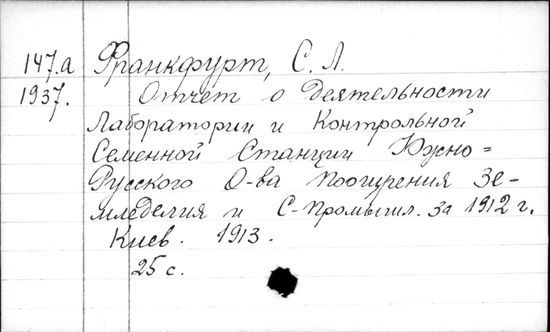 147.а Франкфурт, С. Л.
1937. Отчет о Деятельности
Лаборатории и Контрольной
Семенной Станции Южно=
Русского О-ва поощрения Зе-
мледелия и С-промышл. за 1912 г.
Киев. 1913.
25 с.